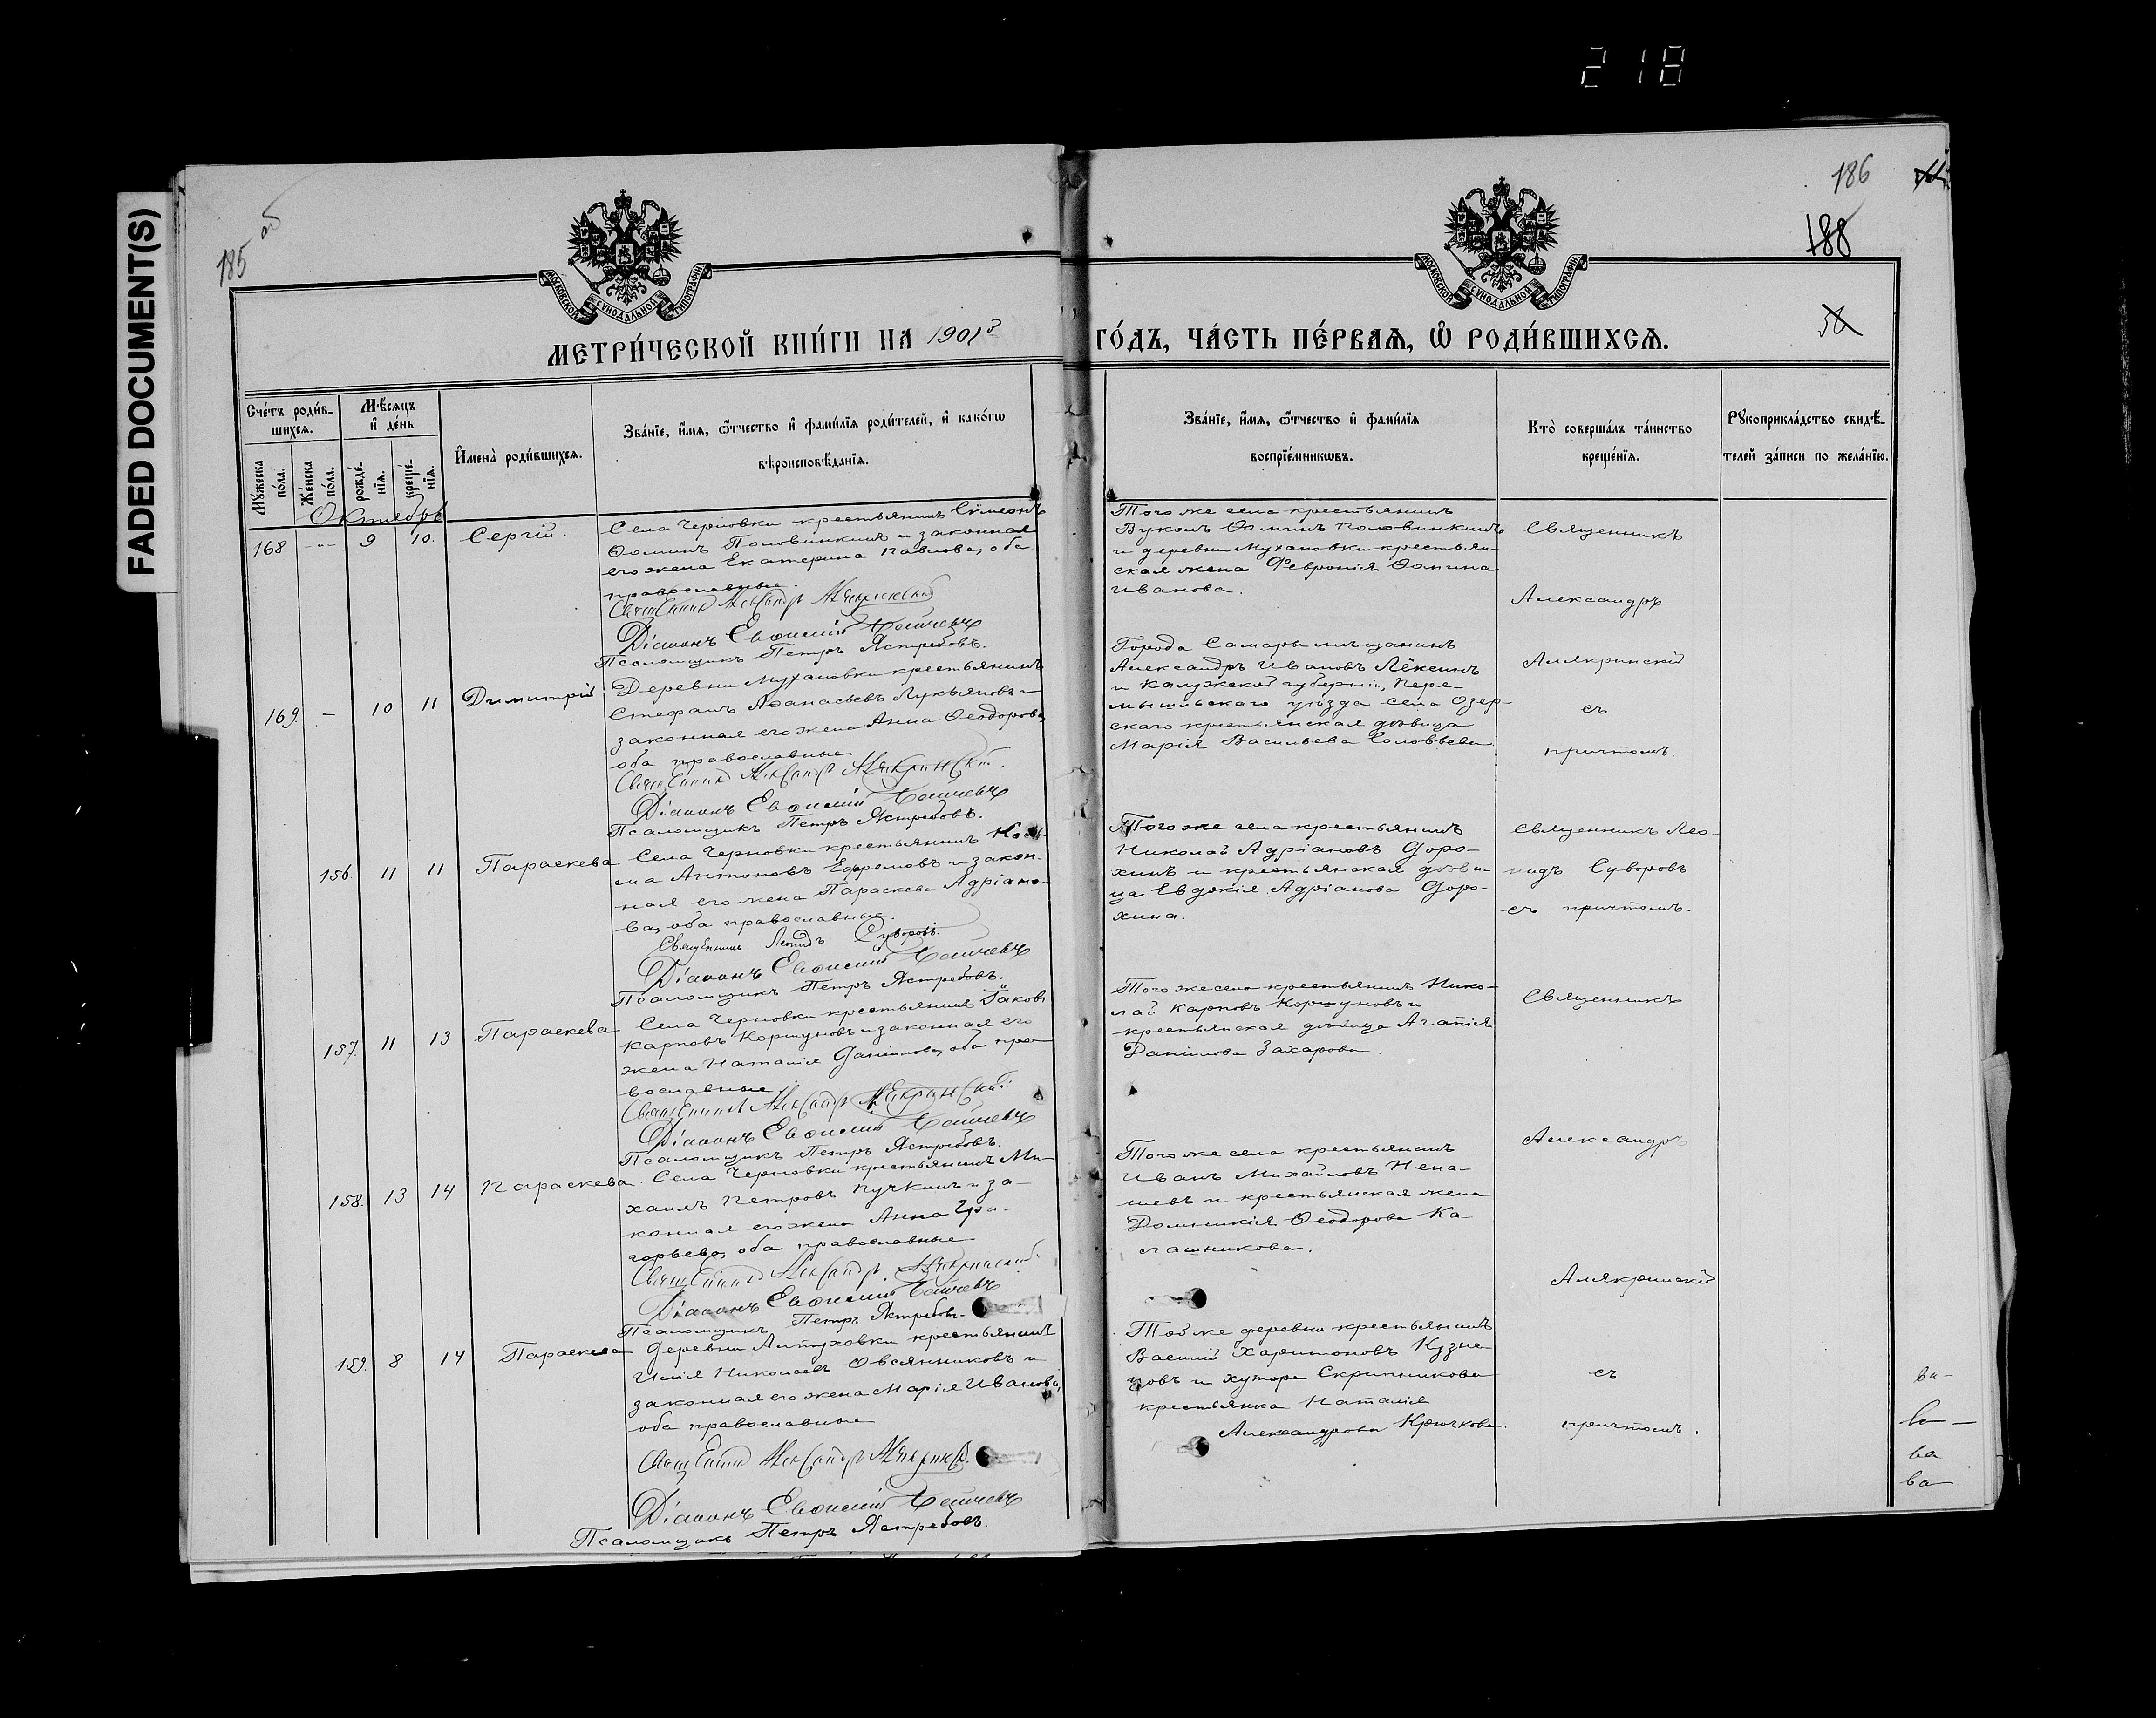 218
FADED DOCUMENT(S)
185 об
186
188
МОСКОВСКОЙ СѴНОДАЛЬНОЙ ТИПОГРАФІИ
МОСКОВСКОЙ СѴНОДАЛЬНОЙ ТИПОГРАФІИ
МЕТРИ́ЧЕСКОЙ КНИ́ГИ НА 1901й ГО́ДЪ, ЧА́СТЬ ПЕ́РВАѦ, Ѡ҆ РОДИ́ВШИХСѦ.
Сче́тъ роди́в-
шихсѧ.
Мꙋ́жеска по́ла.
Же́нска по́ла.
Мѣ́сѧцъ
и҆ де́нь
рожде́-
нїѧ.
креще́-
нїѧ.
И҆мена̀ роди́вшихсѧ.
Зва́нїе, и҆́мѧ, ѻ҆́тчество и҆ фами́лїѧ роди́телей, и҆ како́гѡ
вѣроисповѣ́данїѧ.
Зва́нїе, и҆́мѧ, ѻ҆́тчество и҆ фами́лїѧ
воспрїе́мникѡвъ.
Кто̀ соверша́лъ та́инство
креще́нїѧ.
Рꙋкоприкла́дство свидѣ́-
телей за́писи по жела́нїю.
Октябрь
168 — 9 10. Сергій.
Села Черновки крестьянинъ Сѵмеонъ
Ѳоминъ Половинкинъ и законная
его жена Екатерина Павлова, оба
православные.
Священникъ Александръ Алякринскій
Діаконъ Евѳимій
Псаломщикъ Петръ Ястребовъ.
Того же села крестьянинъ
Вуколъ Ѳоминъ Половинкинъ
и деревни Мухановки крестьян-
ская жена Февронія Ѳомина
Иванова.
Священникъ
Александръ
Алякринскій
съ
причтомъ.
169. — 10 11 Димитрій
Деревни Мухановки крестьянинъ
Стефанъ Аѳанасьевъ Лукьяновъ и
законная его жена Анна Ѳеодорова,
оба православные.
Священникъ Александръ Алякринскій.
Діаконъ Евѳимій
Псаломщикъ Петръ Ястребовъ.
Города Самары мѣщанинъ
Александръ Ивановъ Лёксинъ
и Калужской губерніи, Пере-
мышльскаго уѣзда села Озер-
скаго крестьянская дѣвица
Марія Васильева Соловьева.
156. 11 11 Параскева
Села Черновки крестьянинъ Козь-
ма Антоновъ Ефремовъ и закон-
ная его жена Параскева Адріано-
ва, оба православные.
Священникъ Леонидъ Суворовъ.
Діаконъ Евѳимій
Псаломщикъ Петръ Ястребовъ.
Того же села крестьянинъ
Николай Адріановъ Доро-
хинъ и крестьянская дѣви-
ца Евдокія Адріанова Доро-
хина.
Священникъ Лео-
нидъ Суворовъ
съ причтомъ.
157. 11 13 Параскева
Села Черновки крестьянинъ Іаковъ
Карповъ Коршуновъ и законная его
жена Наталія Данилова, оба пра-
вославные.
Священникъ Александръ Алякринскій
Діаконъ Евѳимій
Псаломщикъ Петръ Ястребовъ.
Того же села крестьянинъ Нико-
лай Карповъ Коршуновъ и
крестьянская дѣвица Агапія
Данилова Захарова.
Священникъ
Александръ
Алякринскій
съ
причтомъ.
158. 13 14 Параскева.
Села Черновки крестьянинъ Ми-
хаилъ Петровъ Пучкинъ и за-
конная его жена Анна Гри-
горьева, оба православные
Священникъ Александръ Алякринскій
Діаконъ Евѳимій
Псаломщикъ Петръ Ястребовъ.
Того же села крестьянинъ
Иванъ Михайловъ Нена-
шевъ и крестьянская жена
Домникія Ѳеодорова Ка-
лашникова.
159. 8 14 Параскева
Деревни Алтуховки крестьянинъ
Илія Николаевъ Овсянниковъ и
законная его жена Марія Иванова,
оба православные
Священникъ Александръ Алякринскій
Діаконъ Евѳимій
Псаломщикъ Петръ Ястребовъ.
Той же деревни крестьянинъ
Василій Харитоновъ Кузне-
цовъ и хутора Скрипникова
крестьянка Наталія
Александрова Крючкова.
ва-
ва-
ва
ва